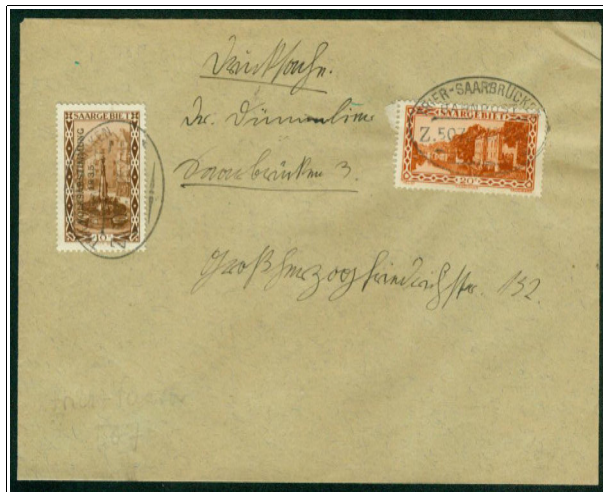 Drucksache.
Dr. Dümmler
Saarbrücken 3.
Großherzog Friedrichstr. 132.
SAARGEBIET
VOLKSABSTIMMUNG
1935
10 c.
TRIER-SAARBRÜCKEN
BAHNPOST
Z.507
SAARGEBIET
20 c.